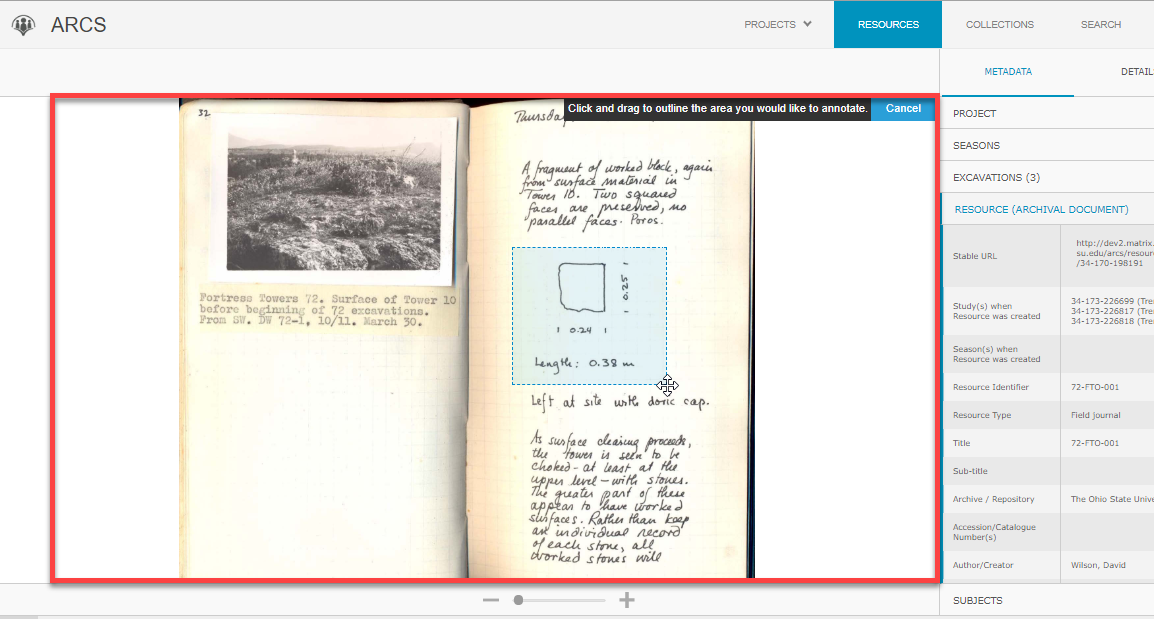 ARCS
PROJECTS
RESOURCES
COLLECTIONS
SEARCH
METADATA
DETAIL
Click and drag to outline the area you would like to annotate.
Cancel
32
Fortress Towers 72. Surface of Tower 10
before beginning of 72 excavations.
From SW. DW 72-1, 10/11. March 30.
Thursday
A fragment of worked block, again
from surface material in
Tower 10. Two squared
faces are preserved, no
parallel faces. Poros.
0.25
0.24
Length: 0.38 m
Left at site with doric cap.
As surface clearing proceeds,
the tower is seen to be
choked - at least at the
upper level - with stones.
The greater part of these
appear to have worked
surfaces. Rather than keep
an individual record
of each stone, all
worked stones will
PROJECT
SEASONS
EXCAVATIONS (3)
RESOURCE (ARCHIVAL DOCUMENT)
Stable URL
http://dev2.matrix.
su.edu/arcs/resour
/34-170-198191
Study(s) when
Resource was created
34-173-226699 (Tre
34-173-226817 (Tre
34-173-226818 (Tre
Season(s) when
Resource was created
Resource Identifier
72-FTO-001
Resource Type
Field journal
Title
72-FTO-001
Sub-title
Archive / Repository
The Ohio State Unive
Accession/Catalogue
Number(s)
Author/Creator
Wilson, David
SUBJECTS